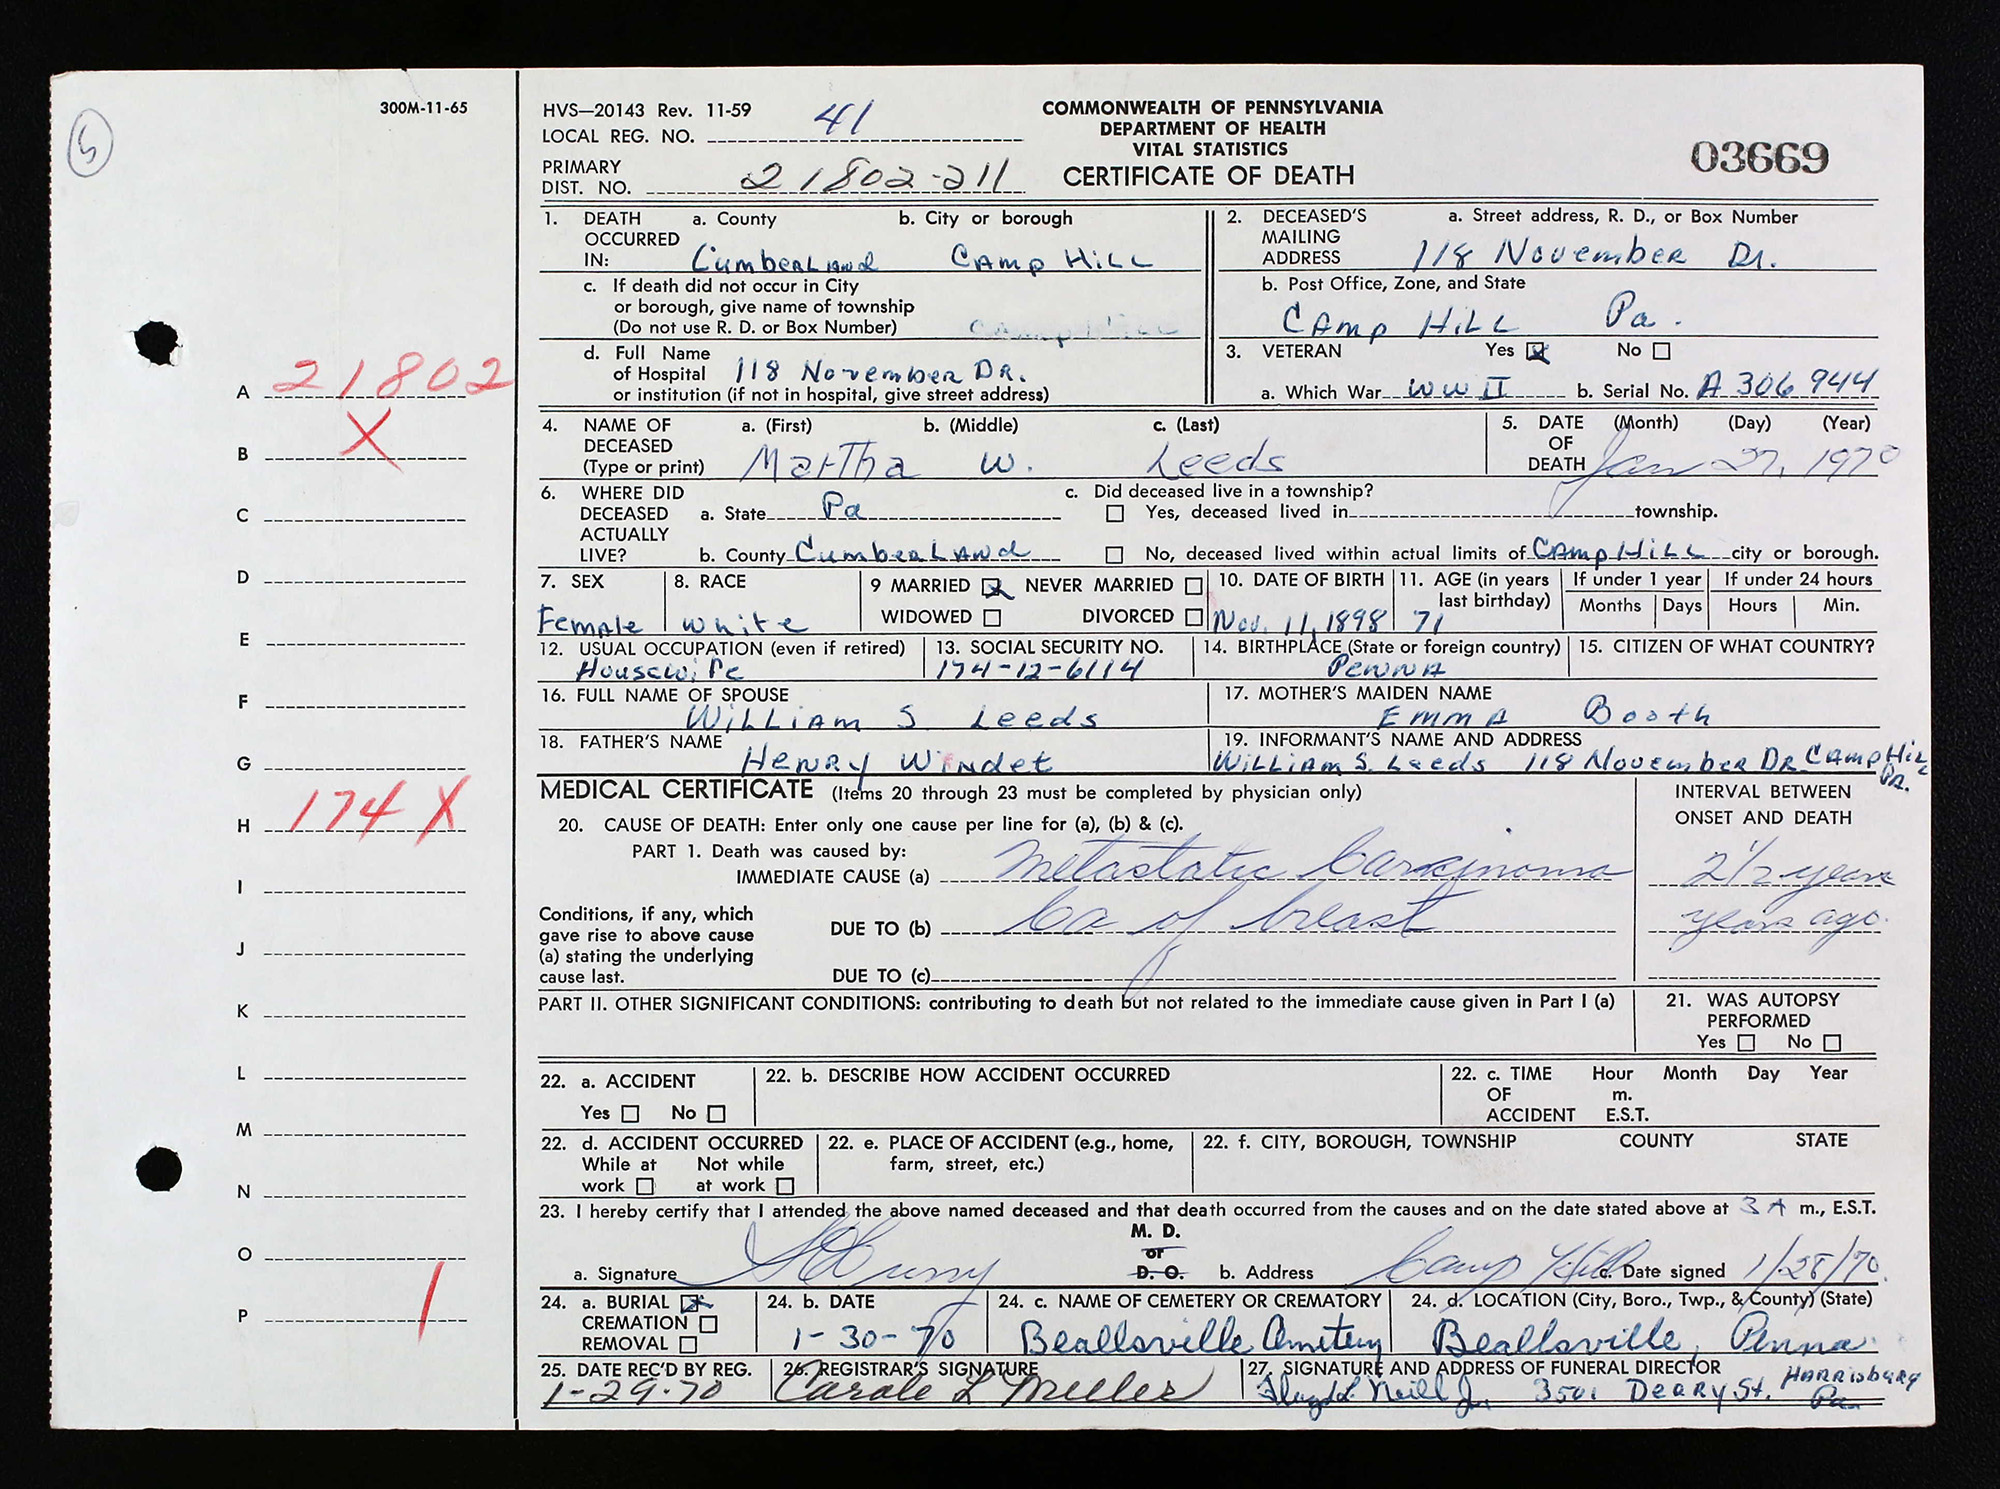 5
300M-11-65
HVS—20143 Rev. 11-59
LOCAL REG. NO. 41
PRIMARY
DIST. NO. 21802-211
COMMONWEALTH OF PENNSYLVANIA
DEPARTMENT OF HEALTH
VITAL STATISTICS
CERTIFICATE OF DEATH
03669
1. DEATH a. County b. City or borough
OCCURRED
IN: Cumberland Camp Hill
c. If death did not occur in City
or borough, give name of township
(Do not use R. D. or Box Number) Camp Hill
d. Full Name
of Hospital 118 November Dr.
or institution (if not in hospital, give street address)
2. DECEASED'S a. Street address, R. D., or Box Number
MAILING
ADDRESS 118 November Dr.
b. Post Office, Zone, and State
Camp Hill Pa.
3. VETERAN Yes No
a. Which War WW II b. Serial No. A 306 944
4. NAME OF a. (First) b. (Middle) c. (Last)
DECEASED
(Type or print) Martha W. Leeds
5. DATE (Month) (Day) (Year)
OF
DEATH Jan 27, 1970
6. WHERE DID
DECEASED a. State Pa
ACTUALLY
LIVE? b. County Cumberland
c. Did deceased live in a township?
Yes, deceased lived in township.
No, deceased lived within actual limits of Camp Hill city or borough.
7. SEX
Female
8. RACE
White
9 MARRIED NEVER MARRIED
WIDOWED DIVORCED
10. DATE OF BIRTH
Nov. 11, 1898
11. AGE (in years
last birthday)
71
If under 1 year
Months Days
If under 24 hours
Hours Min.
12. USUAL OCCUPATION (even if retired)
Housewife
13. SOCIAL SECURITY NO.
174-12-6114
14. BIRTHPLACE (State or foreign country)
Penna
15. CITIZEN OF WHAT COUNTRY?
16. FULL NAME OF SPOUSE
William S. Leeds
17. MOTHER'S MAIDEN NAME
Emma Booth
18. FATHER'S NAME
Henry Windet
19. INFORMANT'S NAME AND ADDRESS
William S. Leeds 118 November Dr. Camp Hill
Pa.
MEDICAL CERTIFICATE (Items 20 through 23 must be completed by physician only)
INTERVAL BETWEEN
ONSET AND DEATH
20. CAUSE OF DEATH: Enter only one cause per line for (a), (b) & (c).
PART 1. Death was caused by:
IMMEDIATE CAUSE (a) Metastatic Carcinoma 2 1/2 years
Conditions, if any, which
gave rise to above cause
(a) stating the underlying
cause last.
DUE TO (b) Ca of breast years ago.
DUE TO (c)
PART II. OTHER SIGNIFICANT CONDITIONS: contributing to death but not related to the immediate cause given in Part I (a)
21. WAS AUTOPSY
PERFORMED
Yes No
22. a. ACCIDENT
Yes No
22. b. DESCRIBE HOW ACCIDENT OCCURRED
22. c. TIME Hour Month Day Year
OF m.
ACCIDENT E.S.T.
22. d. ACCIDENT OCCURRED
While at Not while
work at work
22. e. PLACE OF ACCIDENT (e.g., home,
farm, street, etc.)
22. f. CITY, BOROUGH, TOWNSHIP COUNTY STATE
23. I hereby certify that I attended the above named deceased and that death occurred from the causes and on the date stated above at 3 A m., E.S.T.
M. D.
or
D. O.
a. Signature b. Address Camp Hill c. Date signed 1/28/70.
24. a. BURIAL
CREMATION
REMOVAL
24. b. DATE
1-30-70
24. c. NAME OF CEMETERY OR CREMATORY
Beallsville Cemetery
24. d. LOCATION (City, Boro., Twp., & County) (State)
Beallsville, Penna
25. DATE REC'D BY REG.
1-29-70
26. REGISTRAR'S SIGNATURE
Carole L Miller
27. SIGNATURE AND ADDRESS OF FUNERAL DIRECTOR
Neill Jr. 3501 Derry St. Harrisburg
Pa.
A 21802
B X
C
D
E
F
G
H 174 X
I
J
K
L
M
N
O
P 1